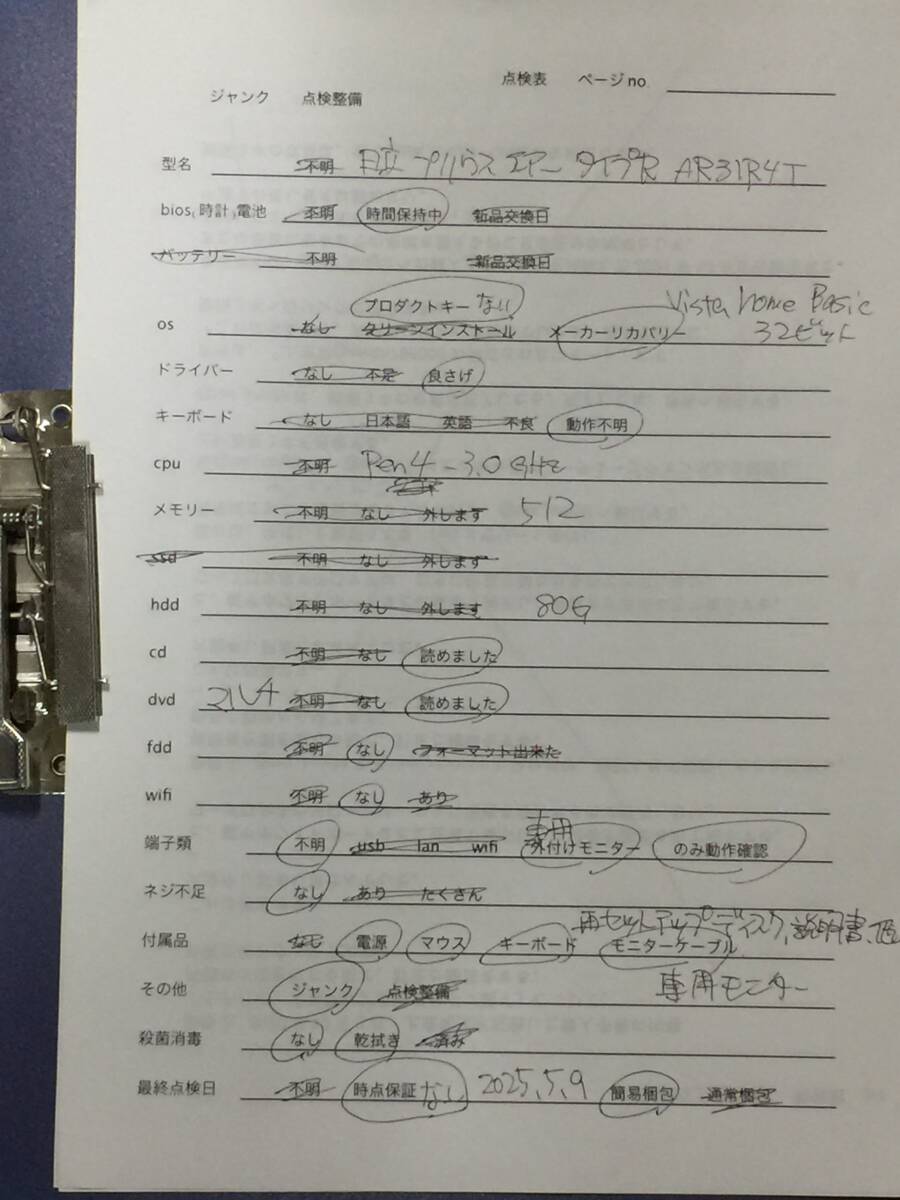 点検表 ページno
ジャンク 点検整備
型名 不明 日立 プリウス エアー タイプR AR31R4T
bios, 時計, 電池 不明 時間保持中 新品交換日
バッテリー 不明 新品交換日
プロダクトキー ない Vista home Basic
os なし クリーンインストール メーカーリカバリー 32ビット
ドライバー なし 不足 良さげ
キーボード なし 日本語 英語 不良 動作不明
cpu 不明 Pen4-3.0GHz
メモリー 不明 なし 外します 512
ssd 不明 なし 外します
hdd 不明 なし 外します 80G
cd 不明 なし 読めました
dvd マルチ 不明 なし 読めました
fdd 不明 なし フォーマット出来た
wifi 不明 なし あり
専用
端子類 不明 usb lan wifi 外付けモニター のみ動作確認
ネジ不足 なし あり たくさん
再セットアップディスク、説明書、他
付属品 なし 電源 マウス キーボード モニターケーブル
その他 ジャンク 点検整備 専用モニター
殺菌消毒 なし 乾拭き 済み
最終点検日 不明 時点保証 ない 2025,5,9 簡易梱包 通常梱包